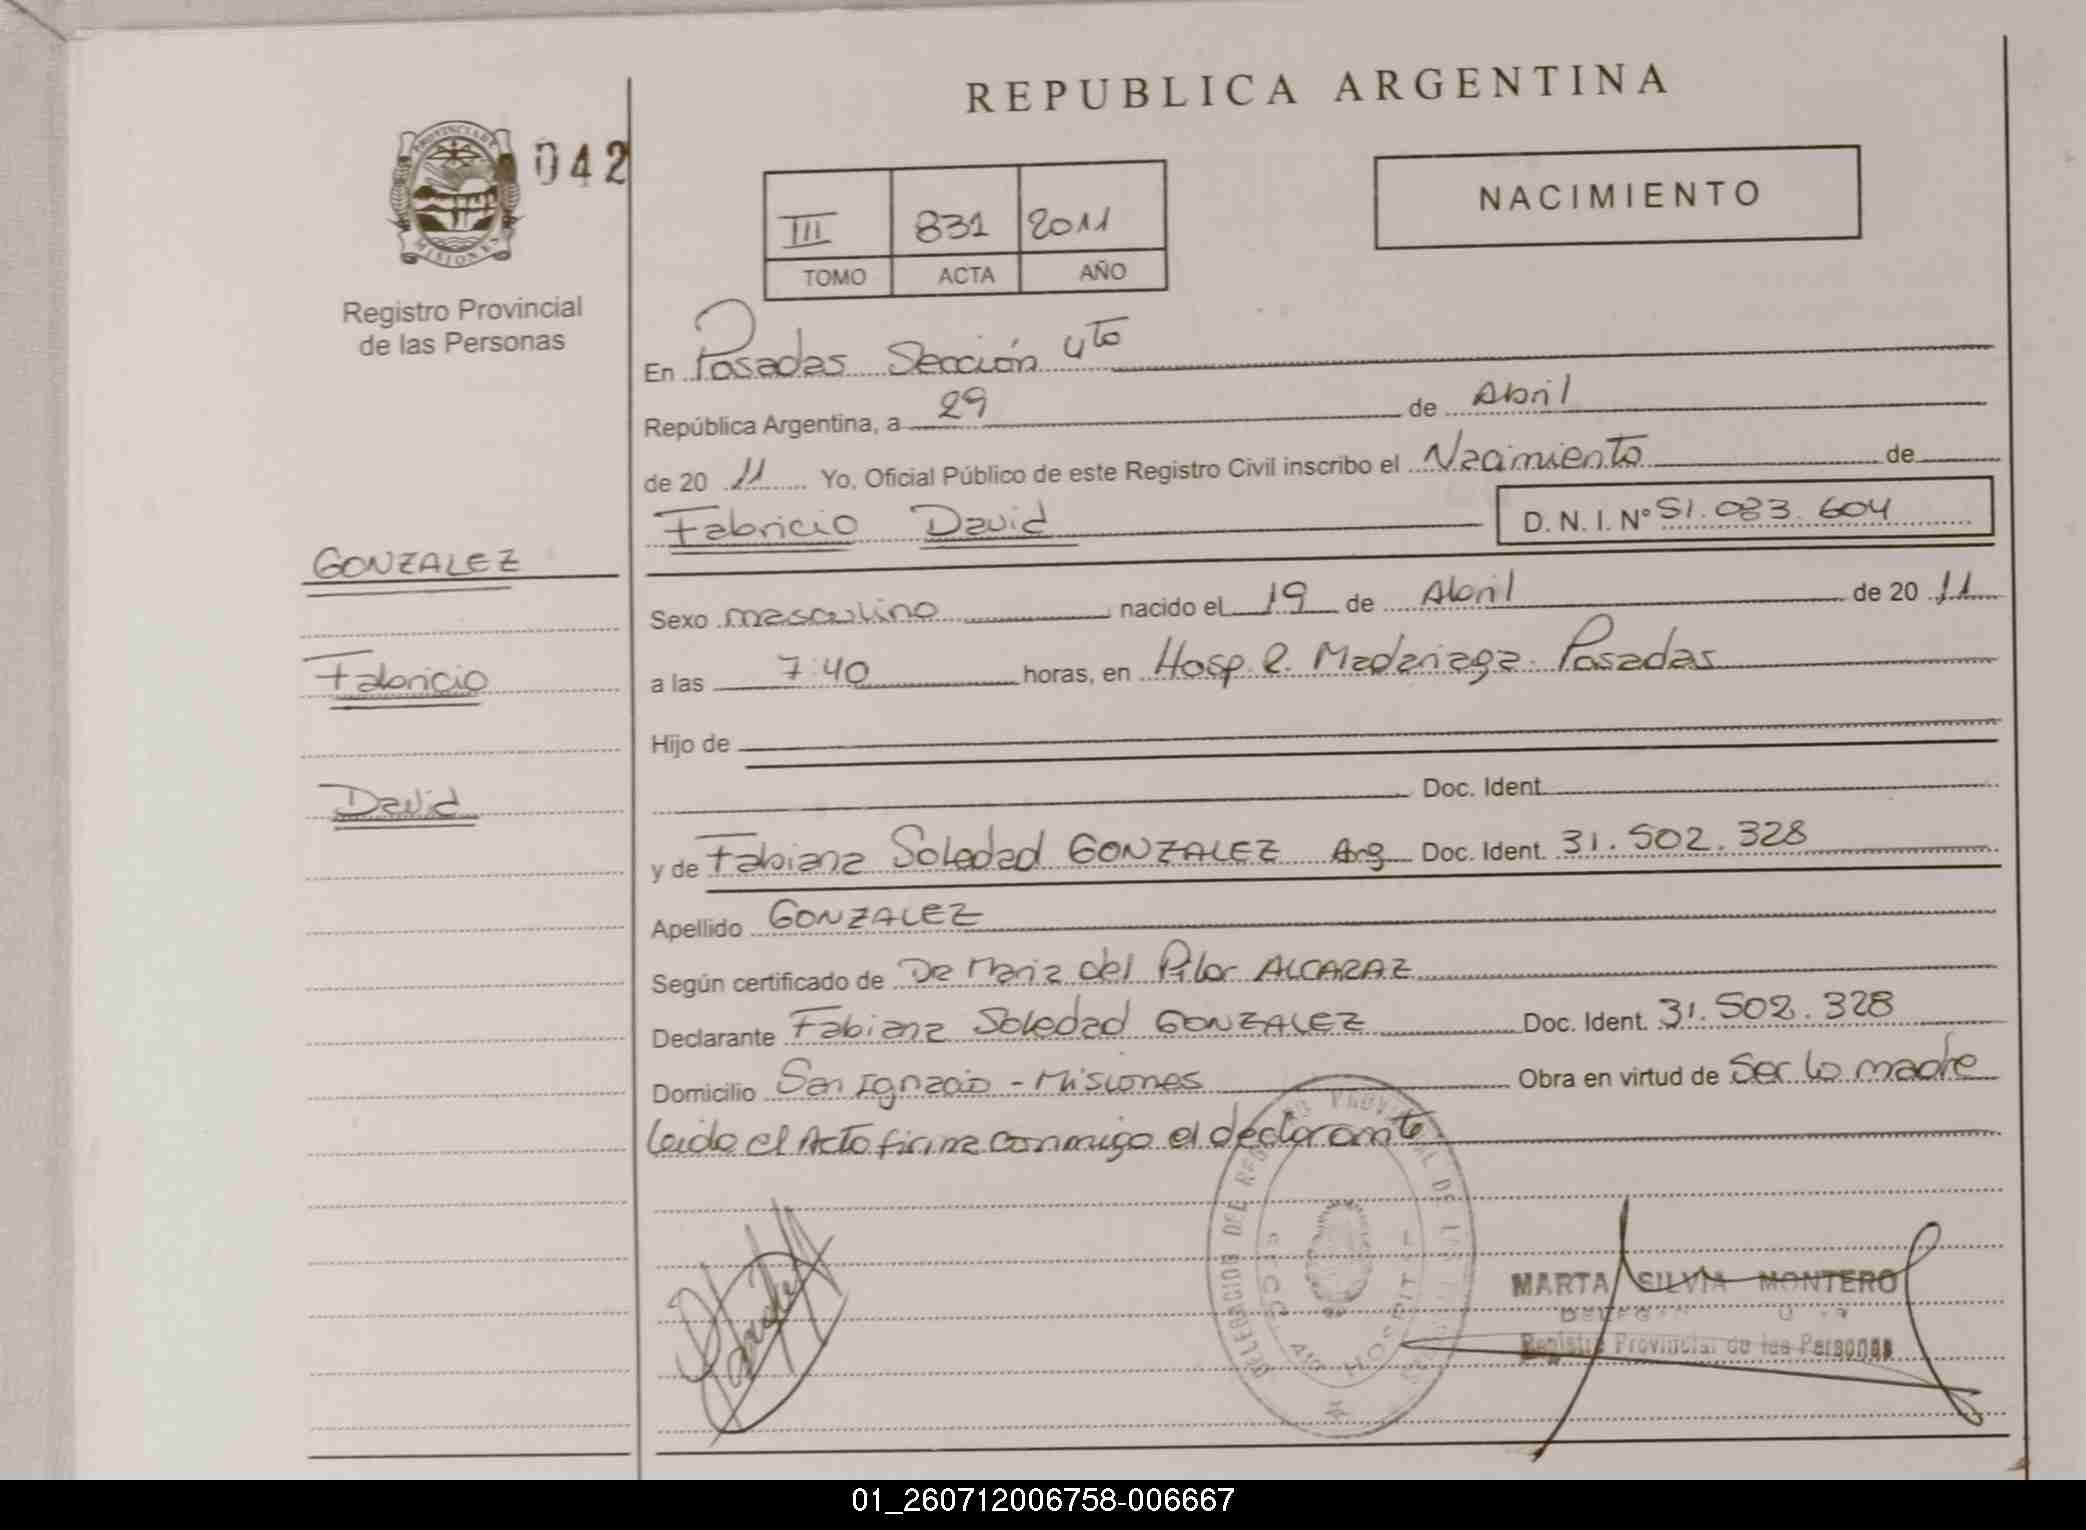 REPUBLICA ARGENTINA
PROVINCIA DE
MISIONES
042
Registro Provincial
de las Personas
III 831 2011
TOMO ACTA AÑO
NACIMIENTO
En Posadas Sección 4to
República Argentina, a 29 de Abril
de 20 11 Yo, Oficial Público de este Registro Civil inscribo el Nacimiento de
Fabricio David D. N. I. Nº 51.083.604
GONZALEZ
Fabricio
David
Sexo masculino nacido el 19 de Abril de 20 11
a las 7:40 horas, en Hosp. R. Madariaga. Posadas
Hijo de
Doc. Ident.
y de Fabiana Soledad GONZALEZ Arg Doc. Ident. 31.502.328
Apellido GONZALEZ
Según certificado de Dra Maria del Pilar ALCARAZ
Declarante Fabiana Soledad GONZALEZ Doc. Ident. 31.502.328
Domicilio San Ignacio - Misiones Obra en virtud de Ser la madre
Leida el Acta firma conmigo el declarante
DELEGACION DEL REGISTRO PROVINCIAL DE LAS
HOSPITAL
MARTA SILVIA MONTERO
Registro Provincial de las Personas
01_260712006758-006667